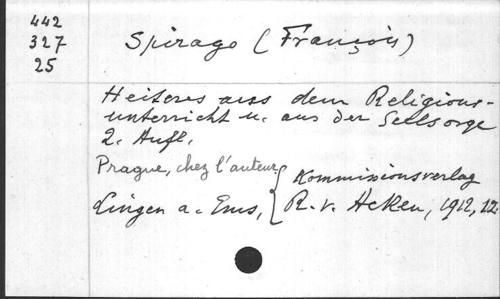 442
327
25
Spirago (François)
Heiteres aus dem Religions-
unterricht u. aus der Seelsorge
2. Aufl.
Prague, chez l'auteur.
Lingen a. Ems, { Kommissionsverlag
R. v. Acken, 1912, 12.